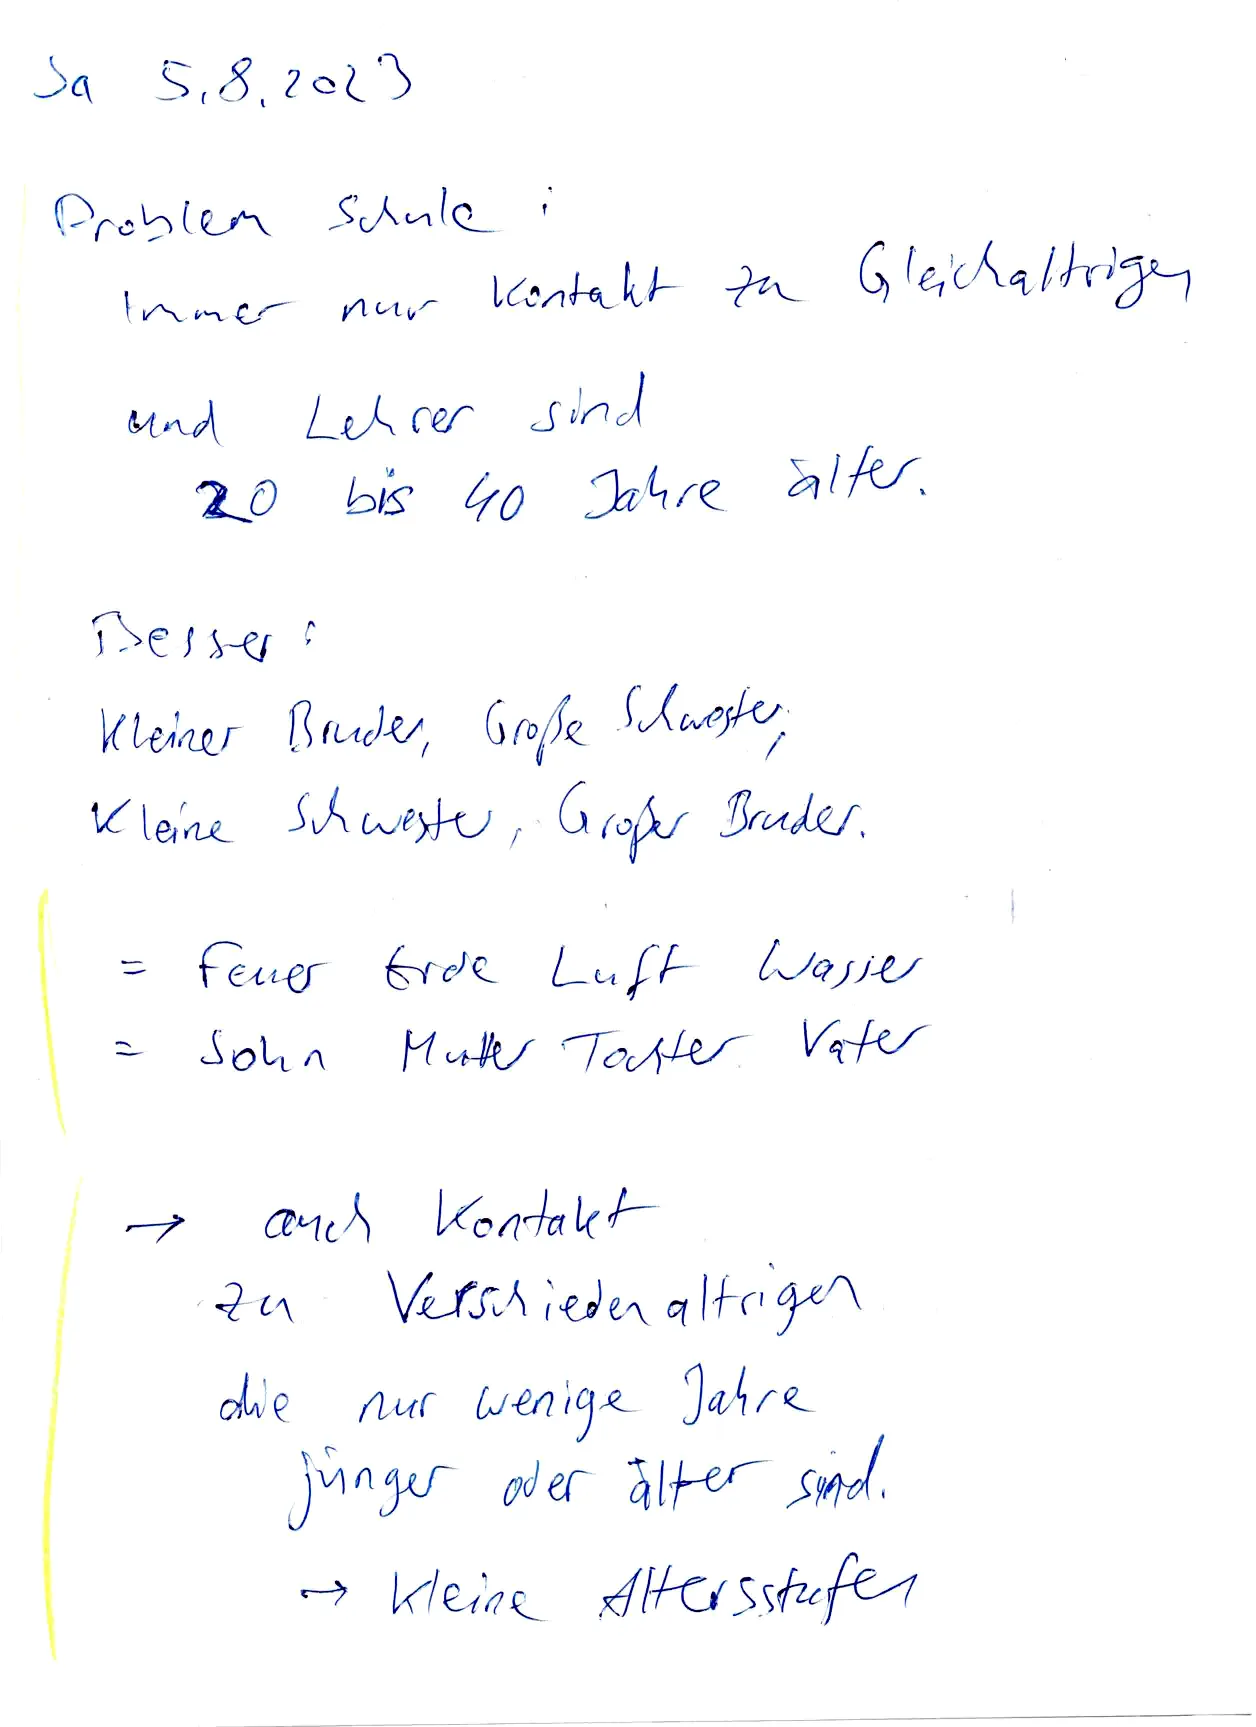 Sa 5.8.2023
Problem Schule:
Immer nur Kontakt zu Gleichaltrigen
und Lehrer sind
20 bis 40 Jahre älter.
Besser:
Kleiner Bruder, Große Schwester,
Kleine Schwester, Großer Bruder.
= Feuer Erde Luft Wasser
= Sohn Mutter Tochter Vater
→ auch Kontakt
zu Verschiedenaltrigen
die nur wenige Jahre
jünger oder älter sind.
→ kleine Altersstufen